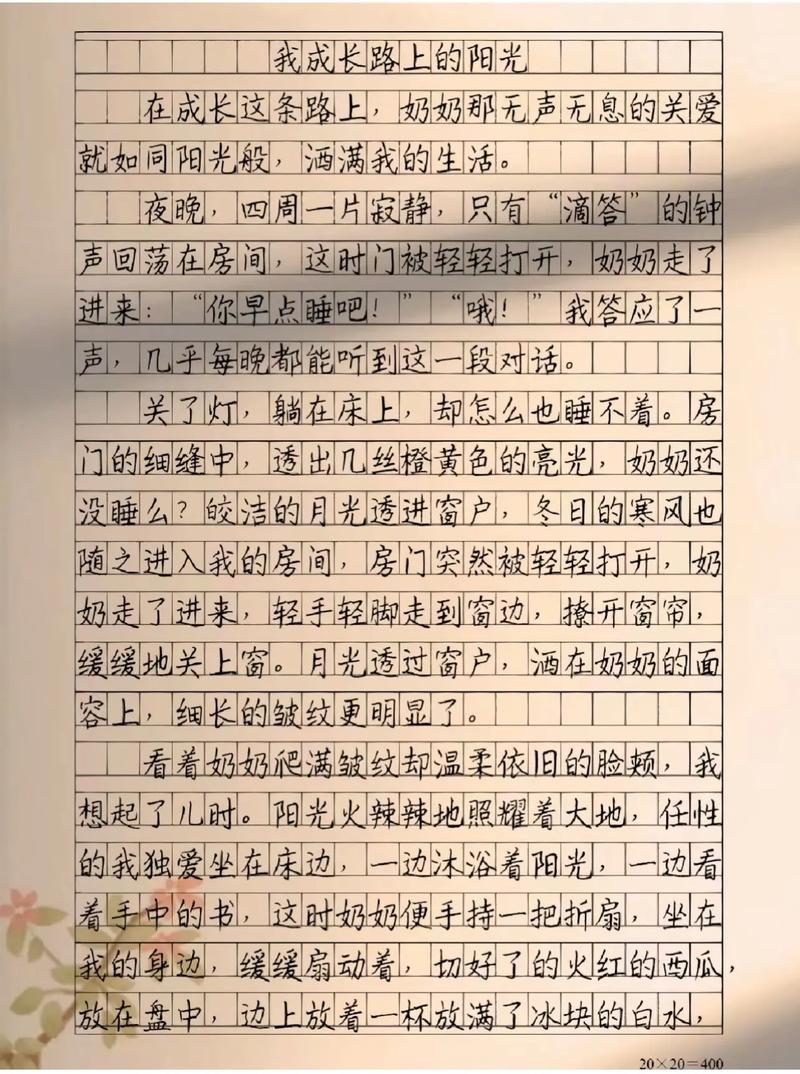 我成长路上的阳光
在成长这条路上，奶奶那无声无息的关爱
就如同阳光般，洒满我的生活。
夜晚，四周一片寂静，只有“滴答”的钟
声回荡在房间，这时门被轻轻打开，奶奶走了
进来：“你早点睡吧！”“哦！”我答应了一
声，几乎每晚都能听到这一段对话。
关了灯，躺在床上，却怎么也睡不着。房
门的细缝中，透出几丝橙黄色的亮光，奶奶还
没睡么？皎洁的月光透进窗户，冬日的寒风也
随之进入我的房间，房门突然被轻轻打开，奶
奶走了进来，轻手轻脚走到窗边，撩开窗帘，
缓缓地关上窗。月光透过窗户，洒在奶奶的面
容上，细长的皱纹更明显了。
看着奶奶爬满皱纹却温柔依旧的脸颊，我
想起了儿时。阳光火辣辣地照耀着大地，任性
的我独爱坐在床边，一边沐浴着阳光，一边看
着手中的书，这时奶奶便手持一把折扇，坐在
我的身边，缓缓扇动着，切好了的火红的西瓜，
放在盘中，边上放着一杯放满了冰块的白水，
20×20=400